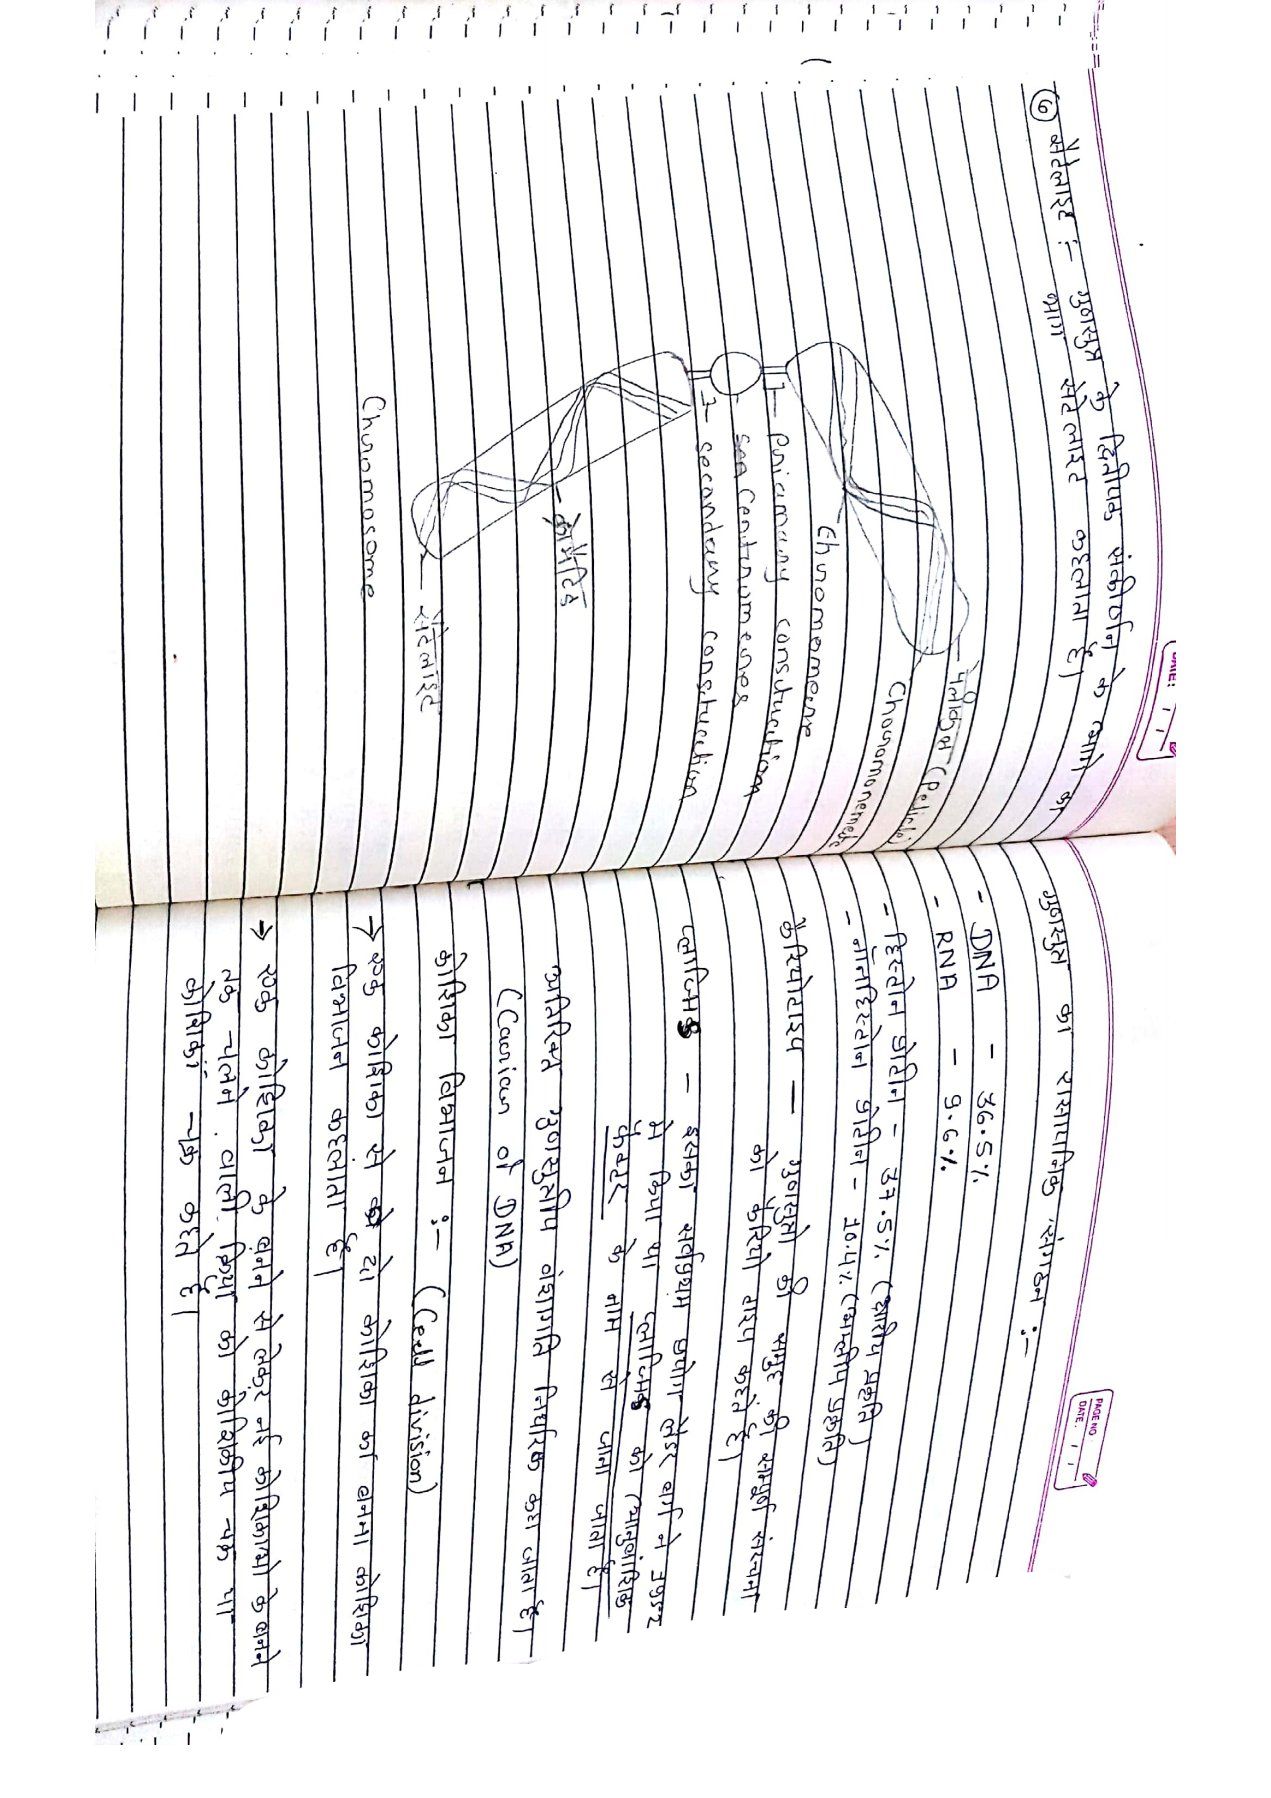 DATE:
⑥ सेटेलाइट :- गुणसुत्र के द्वितीयक संकीर्णन के आगे का
भाग सेटेलाइट कहलाता है।
पेलीकल (Pelicle)
Chromonemeta
Chromomere
1- Primary constriction
Centromeres
2- secondary constriction
क्रोमेटिड
सेटेलाइट
Chromosome
PAGE NO
DATE:
गुणसुत्र का रासायनिक संगठन :-
- DNA - 36.5%
- RNA - 9.6%
- हिस्टोन प्रोटीन - 37.5% (क्षारीय प्रकृति)
- नॉनहिस्टोन प्रोटीन - 10.4% (अम्लीय प्रकृति)
केरियोटाइप — गुणसुत्रो की समुह की सम्पूर्ण संरचना
को केरियो टाइप कहते है।
प्लाज्मिड - इसका सर्वप्रथम प्रयोग लेडर बर्ग ने 1952
मे किया था प्लाज्मिड को आनुवांशिक
फेक्टर के नाम से जाना जाता है।
अतिरिक्त गुणसुत्रीय वंशागति निर्धारक कहा जाता है।
(Carrier of DNA)
कोशिका विभाजन :- (Cell division)
→ एक कोशिका से दो कोशिका का बनना कोशिका
विभाजन कहलाता है।
→ एक कोशिका के बनने से लेकर नई कोशिकाओ के बनने
तक चलने वाली क्रिया को कोशिकीय चक्र या
कोशिका चक्र कहते है।